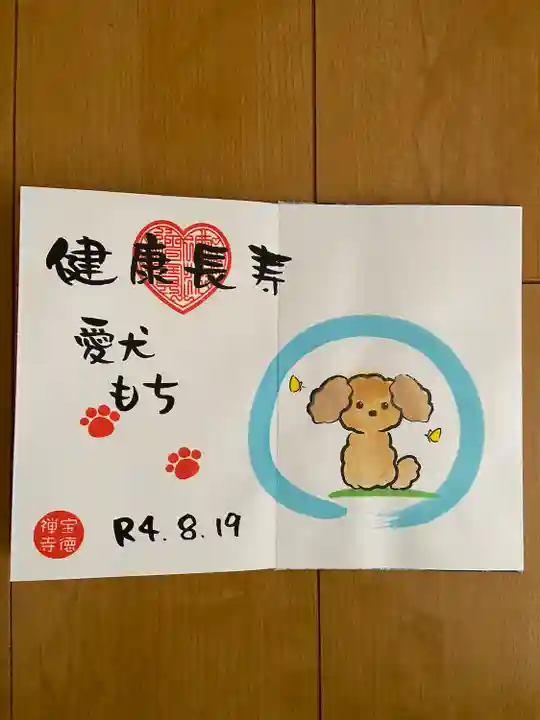 健康長寿
愛犬
もち
R4.8.19
宝徳
禅寺